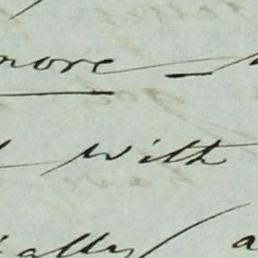 more
with
ally a